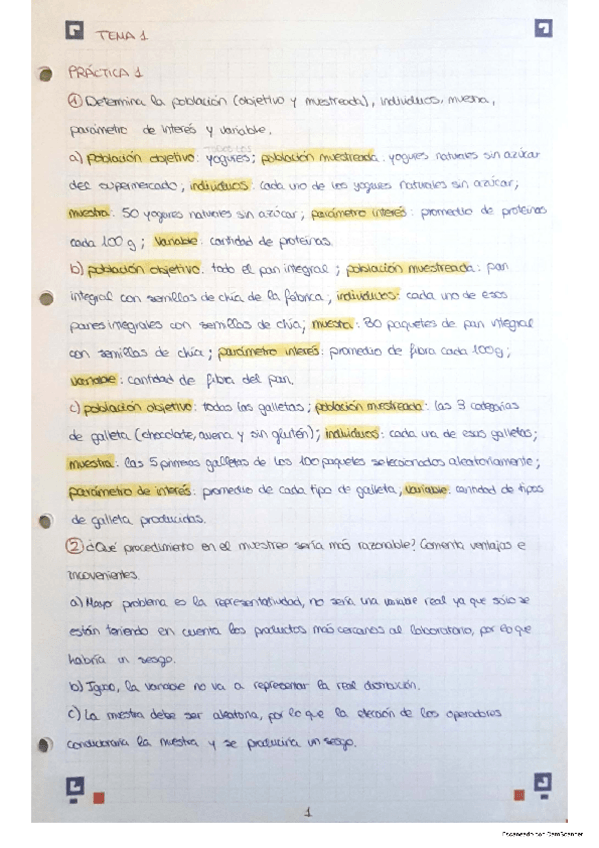 TEMA 1
PRÁCTICA 1
① Determina la población (objetivo y muestreada), individuos, muestra,
parámetro de interés y variable.
a) población objetivo: yogures; población muestreada: yogures naturales sin azúcar
del supermercado; individuos: cada uno de los yogures naturales sin azúcar;
muestra: 50 yogures naturales sin azúcar; parámetro interés: promedio de proteínas
cada 100 g; variable: cantidad de proteínas.
b) población objetivo: todo el pan integral; población muestreada: pan
integral con semillas de chía de la fabrica; individuos: cada uno de esos
panes integrales con semillas de chía; muestra: 30 paquetes de pan integral
con semillas de chía; parámetro interés: promedio de fibra cada 100g;
variable: cantidad de fibra del pan.
c) población objetivo: todas las galletas; población muestreada: las 3 categorías
de galleta (chocolate, avena y sin glutén); individuos: cada una de esas galletas;
muestra: las 5 primeras galletas de los 100 paquetes seleccionados aleatoriamente;
parámetro de interés: promedio de cada tipo de galleta, variable: cantidad de tipos
de galleta producidas.
② ¿Qué procedimiento en el muestreo sería más razonable? Comenta ventajas e
inconvenientes.
a) Mayor problema es la representatividad, no sería una variable real ya que sólo se
están teniendo en cuenta los productos más cercanos al laboratorio, por lo que
habría un sesgo.
b) Igual, la variable no va a representar la real distribución.
c) La muestra debe ser aleatoria, por lo que la elección de los operadores
condicionaría la muestra y se produciría un sesgo.
1
Escaneado con CamScanner